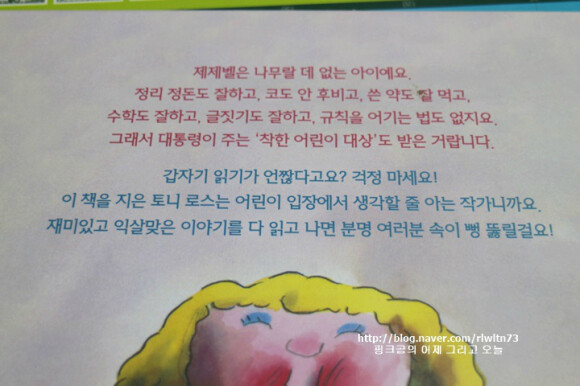 제제벨은 나무랄 데 없는 아이예요.
정리 정돈도 잘하고, 코도 안 후비고, 쓴 약도 잘 먹고,
수학도 잘하고, 글짓기도 잘하고, 규칙을 어기는 법도 없지요.
그래서 대통령이 주는 ‘착한 어린이 대상’도 받은 거랍니다.
갑자기 읽기가 언짢다고요? 걱정 마세요!
이 책을 지은 토니 로스는 어린이 입장에서 생각할 줄 아는 작가니까요.
재미있고 익살맞은 이야기를 다 읽고 나면 분명 여러분 속이 뻥 뚫릴걸요!
http://blog.naver.com/rlwltn73
핑크곰의 어제 그리고 오늘